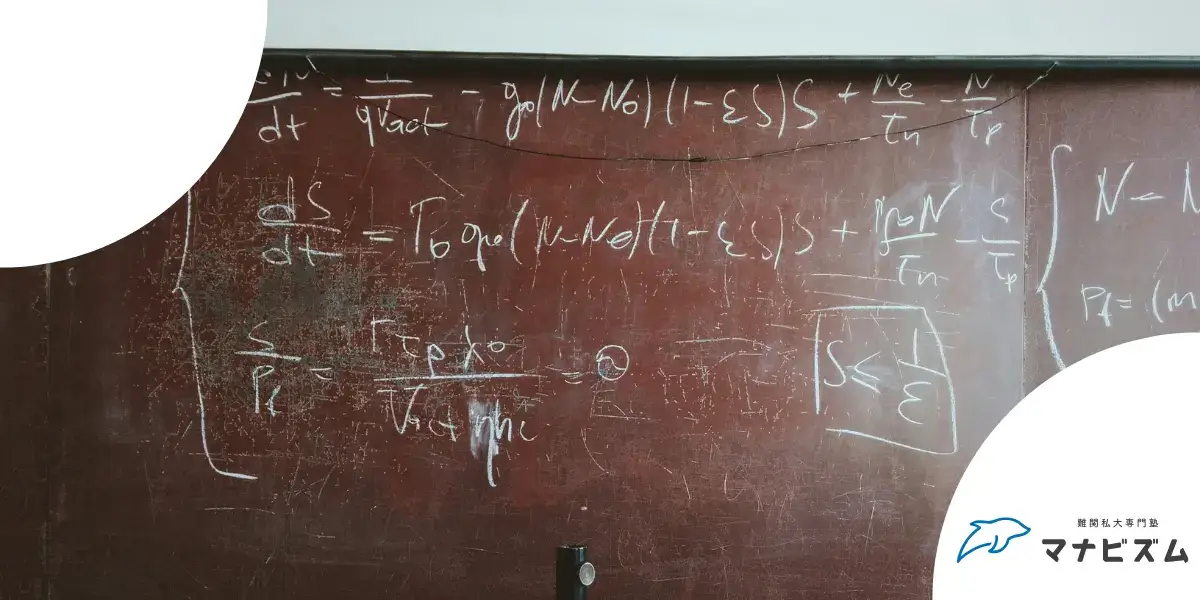 dN/dt = I/qVact - g0(N-N0)(1-εS)S + Ne/τn - N/τp
dS/dt = Γ0 g0(N-N0)(1-εS)S + N/τn - S/τp
S/Pf = Γτpλ0/Vactηhc =
S ≤ 1/ε
N - N
Pf = (m
難関私大専門塾
マナビズム